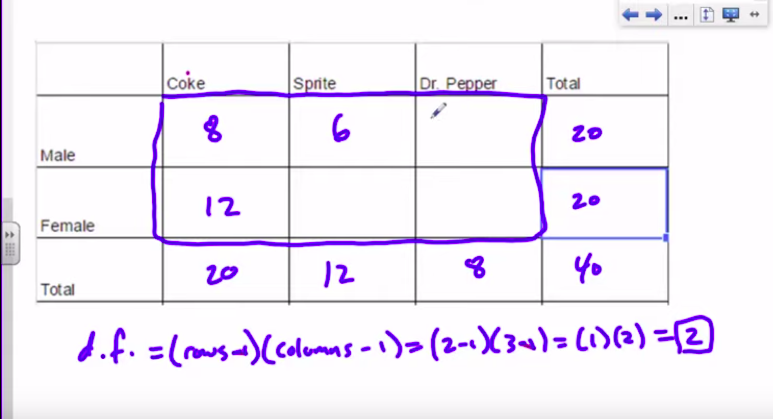 Coke Sprite Dr. Pepper Total
Male 8 6 20
Female 12 20
Total 20 12 8 40
d.f. = (rows-1)(columns-1) = (2-1)(3-1) = (1)(2) = 2